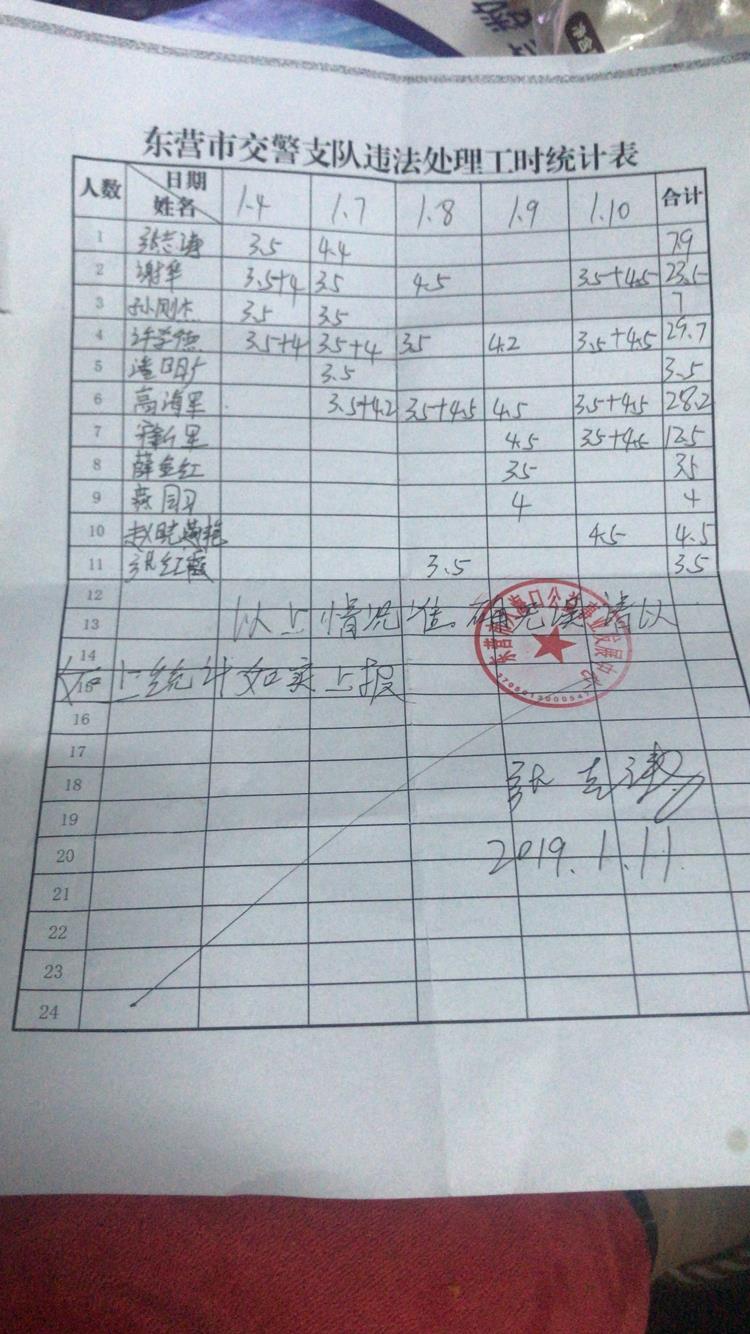 东营市交警支队违法处理工时统计表
人数 日期 姓名 1.4 1.7 1.8 1.9 1.10 合计
1 张志涛 3.5 4.4 7.9
2 谢华 3.5+4 3.5 4.5 3.5+4.5 23.5
3 孙刚杰 3.5 3.5 7
4 3.5+4 3.5+4 3.5 4.2 3.5+4.5 29.7
5 3.5 3.5
6 高海军 3.5+4.2 3.5+4.5 4.5 3.5+4.5 28.2
7 4.5 3.5+4.5 12.5
8 薛金红 3.5 3.5
9 4 4
10 赵晓艳 4.5 4.5
11 张红霞 3.5 3.5
12
13 以上情况准确无误请以
14
15 如上统计如实上报
16
17
18
19
20 2019.1.11
21
22
23
24